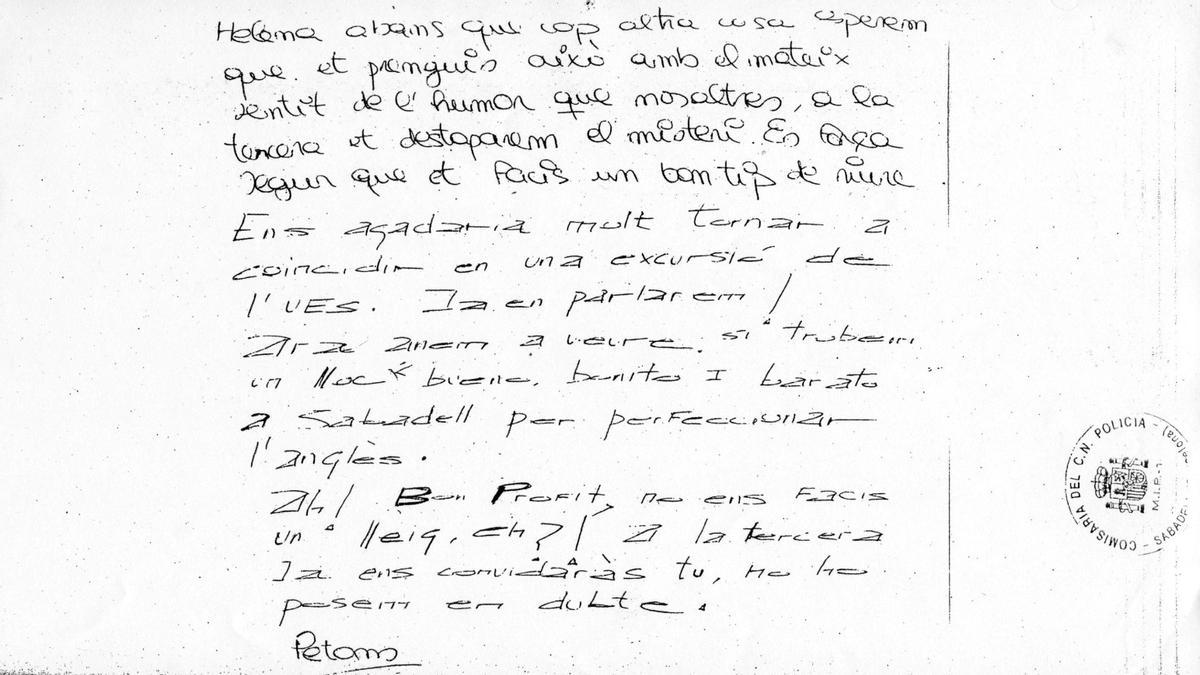 Helena abans que cap altra cosa esperem
que et prenguis això amb el mateix
sentit de l'humor que nosaltres, a la
tercera et destaparem el misteri. Es força
segur que et facis un bon tip de riure
Ens agadaria molt tornar a
coincidir en una excursió de
l'UES. Ja en parlarem!
Ara anem a veure, si trobem
un lloc bueno, bonito I barato
a Sabadell per perfeccionar
l'anglès.
Ah! Bon Profit, no ens facis
un lleig, eh?! A la tercera
Ja ens convidaràs tu, no ho
posem en dubte.
Petons
COMISARIA DEL C.N. POLICIA - SABADELL